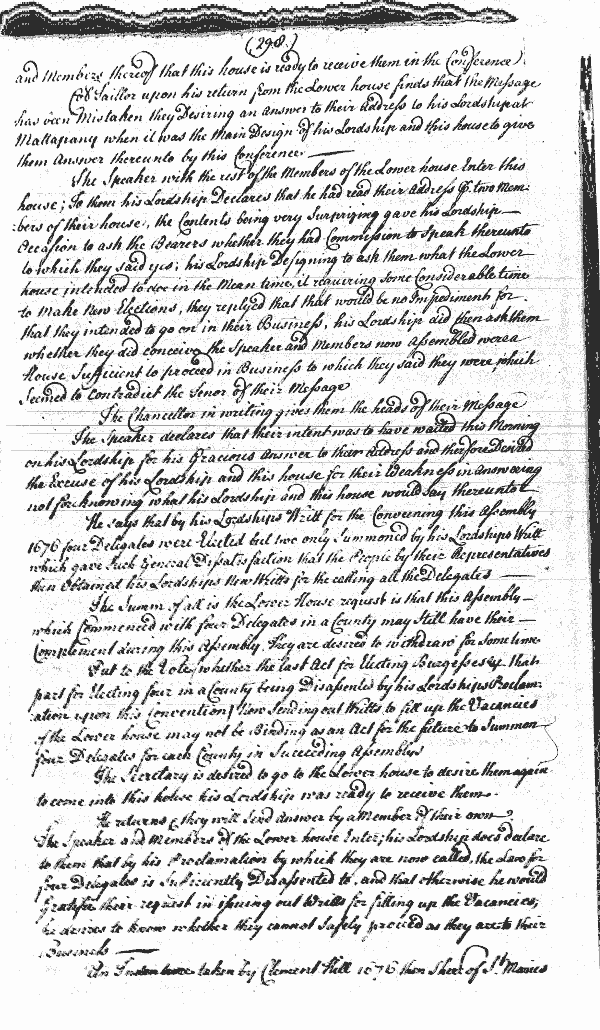 (298.)
and Members thereof that this house is ready to receive them in the Conference
Col Taillor upon his return from the Lower house finds that the Message
has been Mistaken they Desiring an Answer to their Address to his Lordship at
Mattapany when it was the Main Design of his Lordship and this house to give
them Answer thereunto by this Conference
The Speaker with the rest of the Members of the Lower house Enter this
house; To them his Lordship Declares that he had read their Address p. two Mem-
bers of their house, the Contents being very Surprizing gave his Lordship
Occasion to ask the Bearers whether they had Commission to Speak thereunto
to which they said yes; his Lordship Designing to ask them what the Lower
house intended to doe in the Mean time, it requiring Some Considerable time
to Make New Elections, they replyed that that would be no Impediment for
that they intended to go on in their Business, his Lordship did then ask them
whether they did conceive the Speaker and Members now Assembled were a
House Sufficient to proceed in Business to which they said they were, which
Seemed to Contradict the Tenor of their Message
The Chancellor in writing gives them the heads of their Message
The Speaker declares that their intent was to have waited this Morning
on his Lordship for his Gracious Answer to their Address and therefore Desired
the Excuse of his Lordship and this house for their Weakness in answering
not foreknowing what his Lordship and this house would say thereunto
He says that by his Lordships Writt for the Conveening this Assembly
1676 four Delegates were Elected but two only Summoned by his Lordships Writt
which gave Such General Dissatisfaction that the People by their Representatives
then Obtained his Lordships New Writts for the calling all the Delegates
The Summ of all is the Lower House request is that this Assembly
which Commenced with four Delegates in a County may Still have their
Complement during this Assembly. They are desired to withdraw for Some time
Put to the Vote, whether the last Act for Electing Burgesses that
part for Electing four in a County being Disassented by his Lordships Proclam-
ation upon this Convention, Now Sending out Writts to fill up the Vacancies
of the Lower house may not be Binding as an Act for the future to Summon
four Delegates for each County in Succeeding Assemblys
The Secretary is desired to go to the Lower house to desire them again
to come into this house his Lordship was ready to receive them.
He returns they will Send Answer by a Member of their own
The Speaker and Members of the Lower house Enter; his Lordship does declare
to them that by his Proclamation by which they are now called, the Law for
four Delegates is Sufficiently Disassented to, and that otherwise he would
Gratifie their request in issuing out Writts for filling up the Vacancies,
he desires to know whether they cannot Safely proceed as they are to their
Business
An taken by Clement Hill 1676 then Sher of St Maries